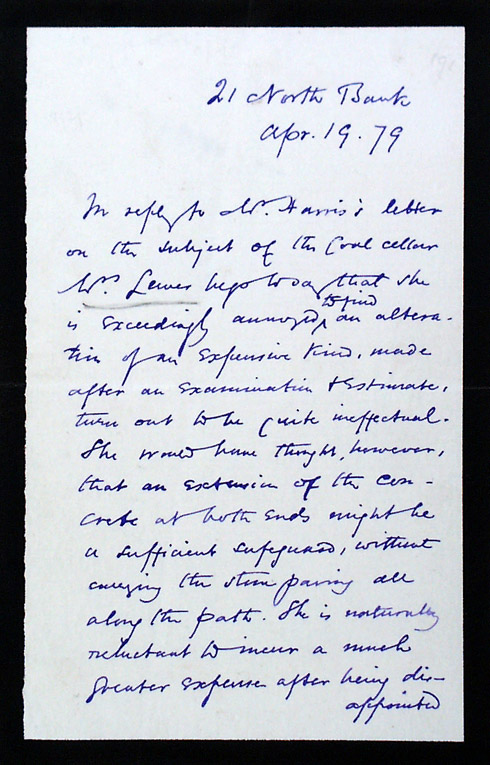 21 North Bank
Apr. 19. 79
In reply to Mr. Harris's letter
on the subject of the Coal cellar
Mrs Lewes begs to say that she
is exceedingly annoyed, to find an altera-
tion of an expensive kind, made
after an examination & estimate,
turn out to be quite ineffectual.
She would have thought, however,
that an extension of the con-
crete at both ends might be
a sufficient safeguard, without
carrying the stone paving all
along the path. She is naturally
reluctant to incur a much
greater expense after being dis-
appointed